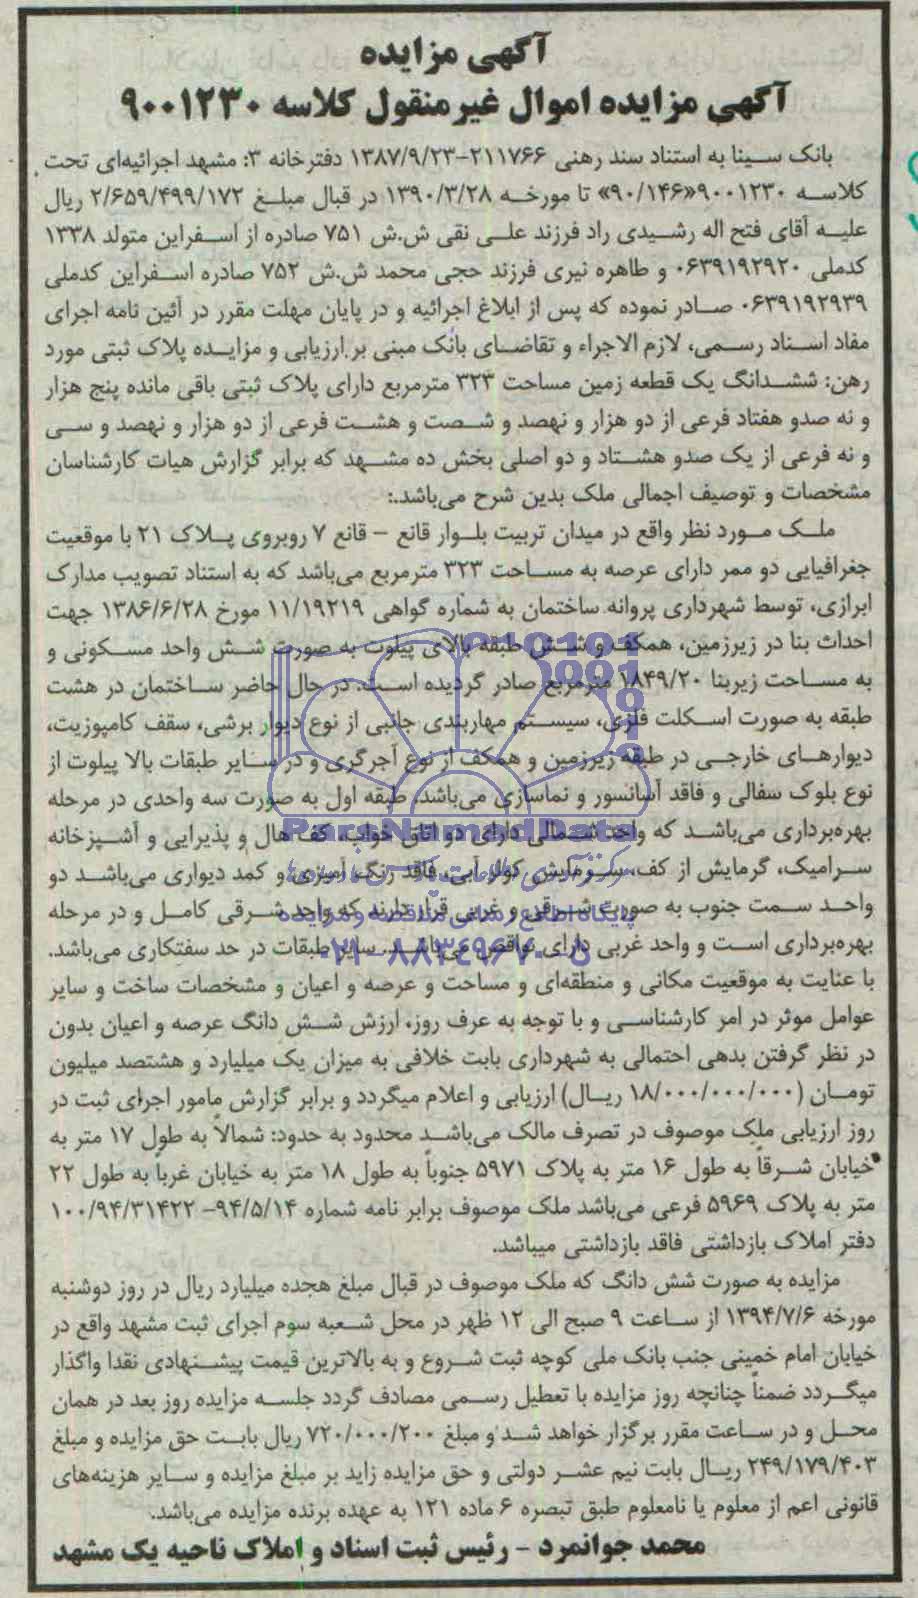 آگهی مزایده
آگهی مزایده اموال غیرمنقول کلاسه ۹۰۰۱۲۳۰
بانک سینا به استناد سند رهنی ۲۱۱۷۶۶-۱۳۸۷/۹/۲۳ دفترخانه ۳: مشهد اجرائیه‌ای تحت
کلاسه ۹۰۰۱۲۳۰«۹۰/۱۴۶» تا مورخه ۱۳۹۰/۳/۲۸ در قبال مبلغ ۲/۶۵۹/۴۹۹/۱۷۲ ریال
علیه آقای فتح اله رشیدی راد فرزند علی نقی ش.ش ۷۵۱ صادره از اسفراین متولد ۱۳۳۸
کدملی ۰۶۳۹۱۹۲۹۲۰ و طاهره نیری فرزند حجی محمد ش.ش ۷۵۲ صادره اسفراین کدملی
۰۶۳۹۱۹۲۹۳۹ صادر نموده که پس از ابلاغ اجرائیه و در پایان مهلت مقرر در آئین نامه اجرای
مفاد اسناد رسمی، لازم الاجراء و تقاضای بانک مبنی بر ارزیابی و مزایده پلاک ثبتی مورد
رهن: ششدانگ یک قطعه زمین مساحت ۳۲۳ مترمربع دارای پلاک ثبتی باقی مانده پنج هزار
و نه صدو هفتاد فرعی از دو هزار و نهصد و شصت و هشت فرعی از دو هزار و نهصد و سی
و نه فرعی از یک صدو هشتاد و دو اصلی بخش ده مشهد که برابر گزارش هیات کارشناسان
مشخصات و توصیف اجمالی ملک بدین شرح می‌باشد.:
ملک مورد نظر واقع در میدان تربیت بلوار قانع – قانع ۷ روبروی پلاک ۲۱ با موقعیت
جغرافیایی دو ممر دارای عرصه به مساحت ۳۲۳ مترمربع می‌باشد که به استناد تصویب مدارک
ابرازی، توسط شهرداری پروانه ساختمان به شماره گواهی ۱۱/۱۹۲۱۹ مورخ ۱۳۸۶/۶/۲۸ جهت
احداث بنا در زیرزمین، همکف و شش طبقه بالای پیلوت به صورت شش واحد مسکونی و
به مساحت زیربنا ۱۸۴۹/۲۰ مترمربع صادر گردیده است. در حال حاضر ساختمان در هشت
طبقه به صورت اسکلت فلزی، سیستم مهاربندی جانبی از نوع دیوار برشی، سقف کامپوزیت،
دیوارهای خارجی در طبقه زیرزمین و همکف از نوع آجرگری و در سایر طبقات بالا پیلوت از
نوع بلوک سفالی و فاقد آسانسور و نماسازی می‌باشد. طبقه اول به صورت سه واحدی در مرحله
بهره‌برداری می‌باشد که واحد شمالی دارای دو اتاق خواب، کف هال و پذیرایی و آشپزخانه
سرامیک، گرمایش از کف، سرمایش کولر آبی، فاقد رنگ آمیزی و کمد دیواری می‌باشد دو
واحد سمت جنوب به صورت شرقی و غربی قرار دارند که واحد شرقی کامل و در مرحله
بهره‌برداری است و واحد غربی دارای نواقص می‌باشد. سایر طبقات در حد سفتکاری می‌باشد.
با عنایت به موقعیت مکانی و منطقه‌ای و مساحت و عرصه و اعیان و مشخصات ساخت و سایر
عوامل موثر در امر کارشناسی و با توجه به عرف روز، ارزش شش دانگ عرصه و اعیان بدون
در نظر گرفتن بدهی احتمالی به شهرداری بابت خلافی به میزان یک میلیارد و هشتصد میلیون
تومان (۱۸/۰۰۰/۰۰۰/۰۰۰ ریال) ارزیابی و اعلام میگردد و برابر گزارش مامور اجرای ثبت در
روز ارزیابی ملک موصوف در تصرف مالک می‌باشد محدود به حدود: شمالاً به طول ۱۷ متر به
خیابان شرقاً به طول ۱۶ متر به پلاک ۵۹۷۱ جنوباً به طول ۱۸ متر به خیابان غرباً به طول ۲۲
متر به پلاک ۵۹۶۹ فرعی می‌باشد ملک موصوف برابر نامه شماره ۹۴/۵/۱۴– ۱۰۰/۹۴/۳۱۴۲۲
دفتر املاک بازداشتی فاقد بازداشتی میباشد.
مزایده به صورت شش دانگ که ملک موصوف در قبال مبلغ هجده میلیارد ریال در روز دوشنبه
مورخه ۱۳۹۴/۷/۶ از ساعت ۹ صبح الی ۱۲ ظهر در محل شعبه سوم اجرای ثبت مشهد واقع در
خیابان امام خمینی جنب بانک ملی کوچه ثبت شروع و به بالاترین قیمت پیشنهادی نقدا واگذار
میگردد ضمناً چنانچه روز مزایده با تعطیل رسمی مصادف گردد جلسه مزایده روز بعد در همان
محل و در ساعت مقرر برگزار خواهد شد و مبلغ ۷۲۰/۰۰۰/۲۰۰ ریال بابت حق مزایده و مبلغ
۲۴۹/۱۷۹/۴۰۳ ریال بابت نیم عشر دولتی و حق مزایده زاید بر مبلغ مزایده و سایر هزینه‌های
قانونی اعم از معلوم یا نامعلوم طبق تبصره ۶ ماده ۱۲۱ به عهده برنده مزایده می‌باشد.
محمد جوانمرد – رئیس ثبت اسناد و املاک ناحیه یک مشهد
ParsNamadData
پایگاه اطلاع رسانی مناقصه و مزایده
۰۲۱-۸۸۳۴۹۶۷۰-۵